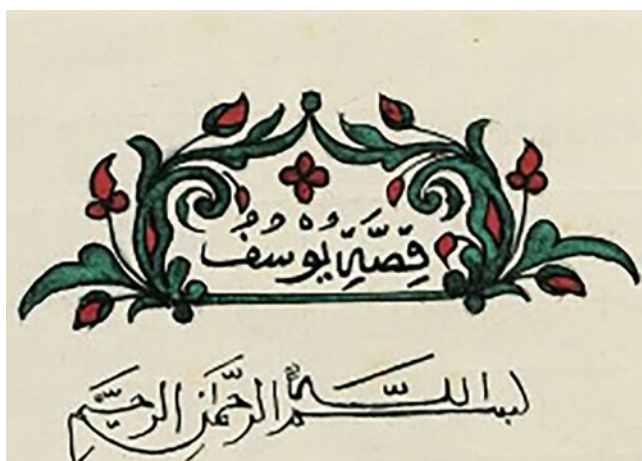 قِصَّةِ يُوْسُفُ
بسم الله الرحمن الرحيم